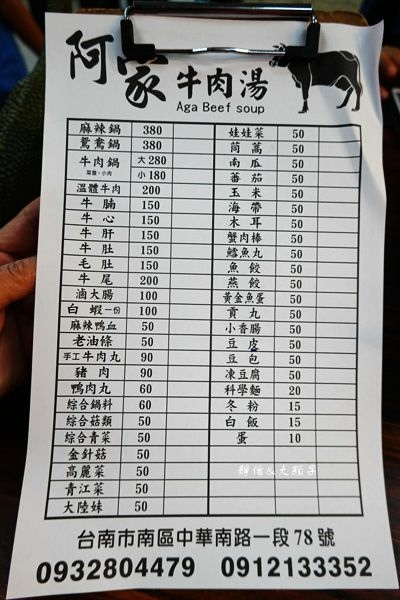 阿家牛肉湯
Aga Beef soup
麻辣鍋 380 娃娃菜 50
鴛鴦鍋 380 茼萵 50
牛肉鍋 大280 南瓜 50
菜盤、小肉 小180 番茄 50
溫體牛肉 200 玉米 50
牛腩 150 海帶 50
牛心 150 木耳 50
牛肝 150 蟹肉棒 50
牛肚 150 鱈魚丸 50
毛肚 150 魚餃 50
牛尾 200 燕餃 50
滷大腸 100 黃金魚蛋 50
白蝦一份 100 貢丸 50
麻辣鴨血 50 小香腸 50
老油條 50 豆皮 50
手工牛肉丸 90 豆包 50
豬肉 90 凍豆腐 50
鴨肉丸 60 科學麵 20
綜合鍋料 60 冬粉 15
綜合菇類 50 白飯 15
綜合青菜 50 蛋 10
金針菇 50
高麗菜 50
青江菜 50
大陸妹 50
台南市南區中華南路一段78號
0932804479 0912133352